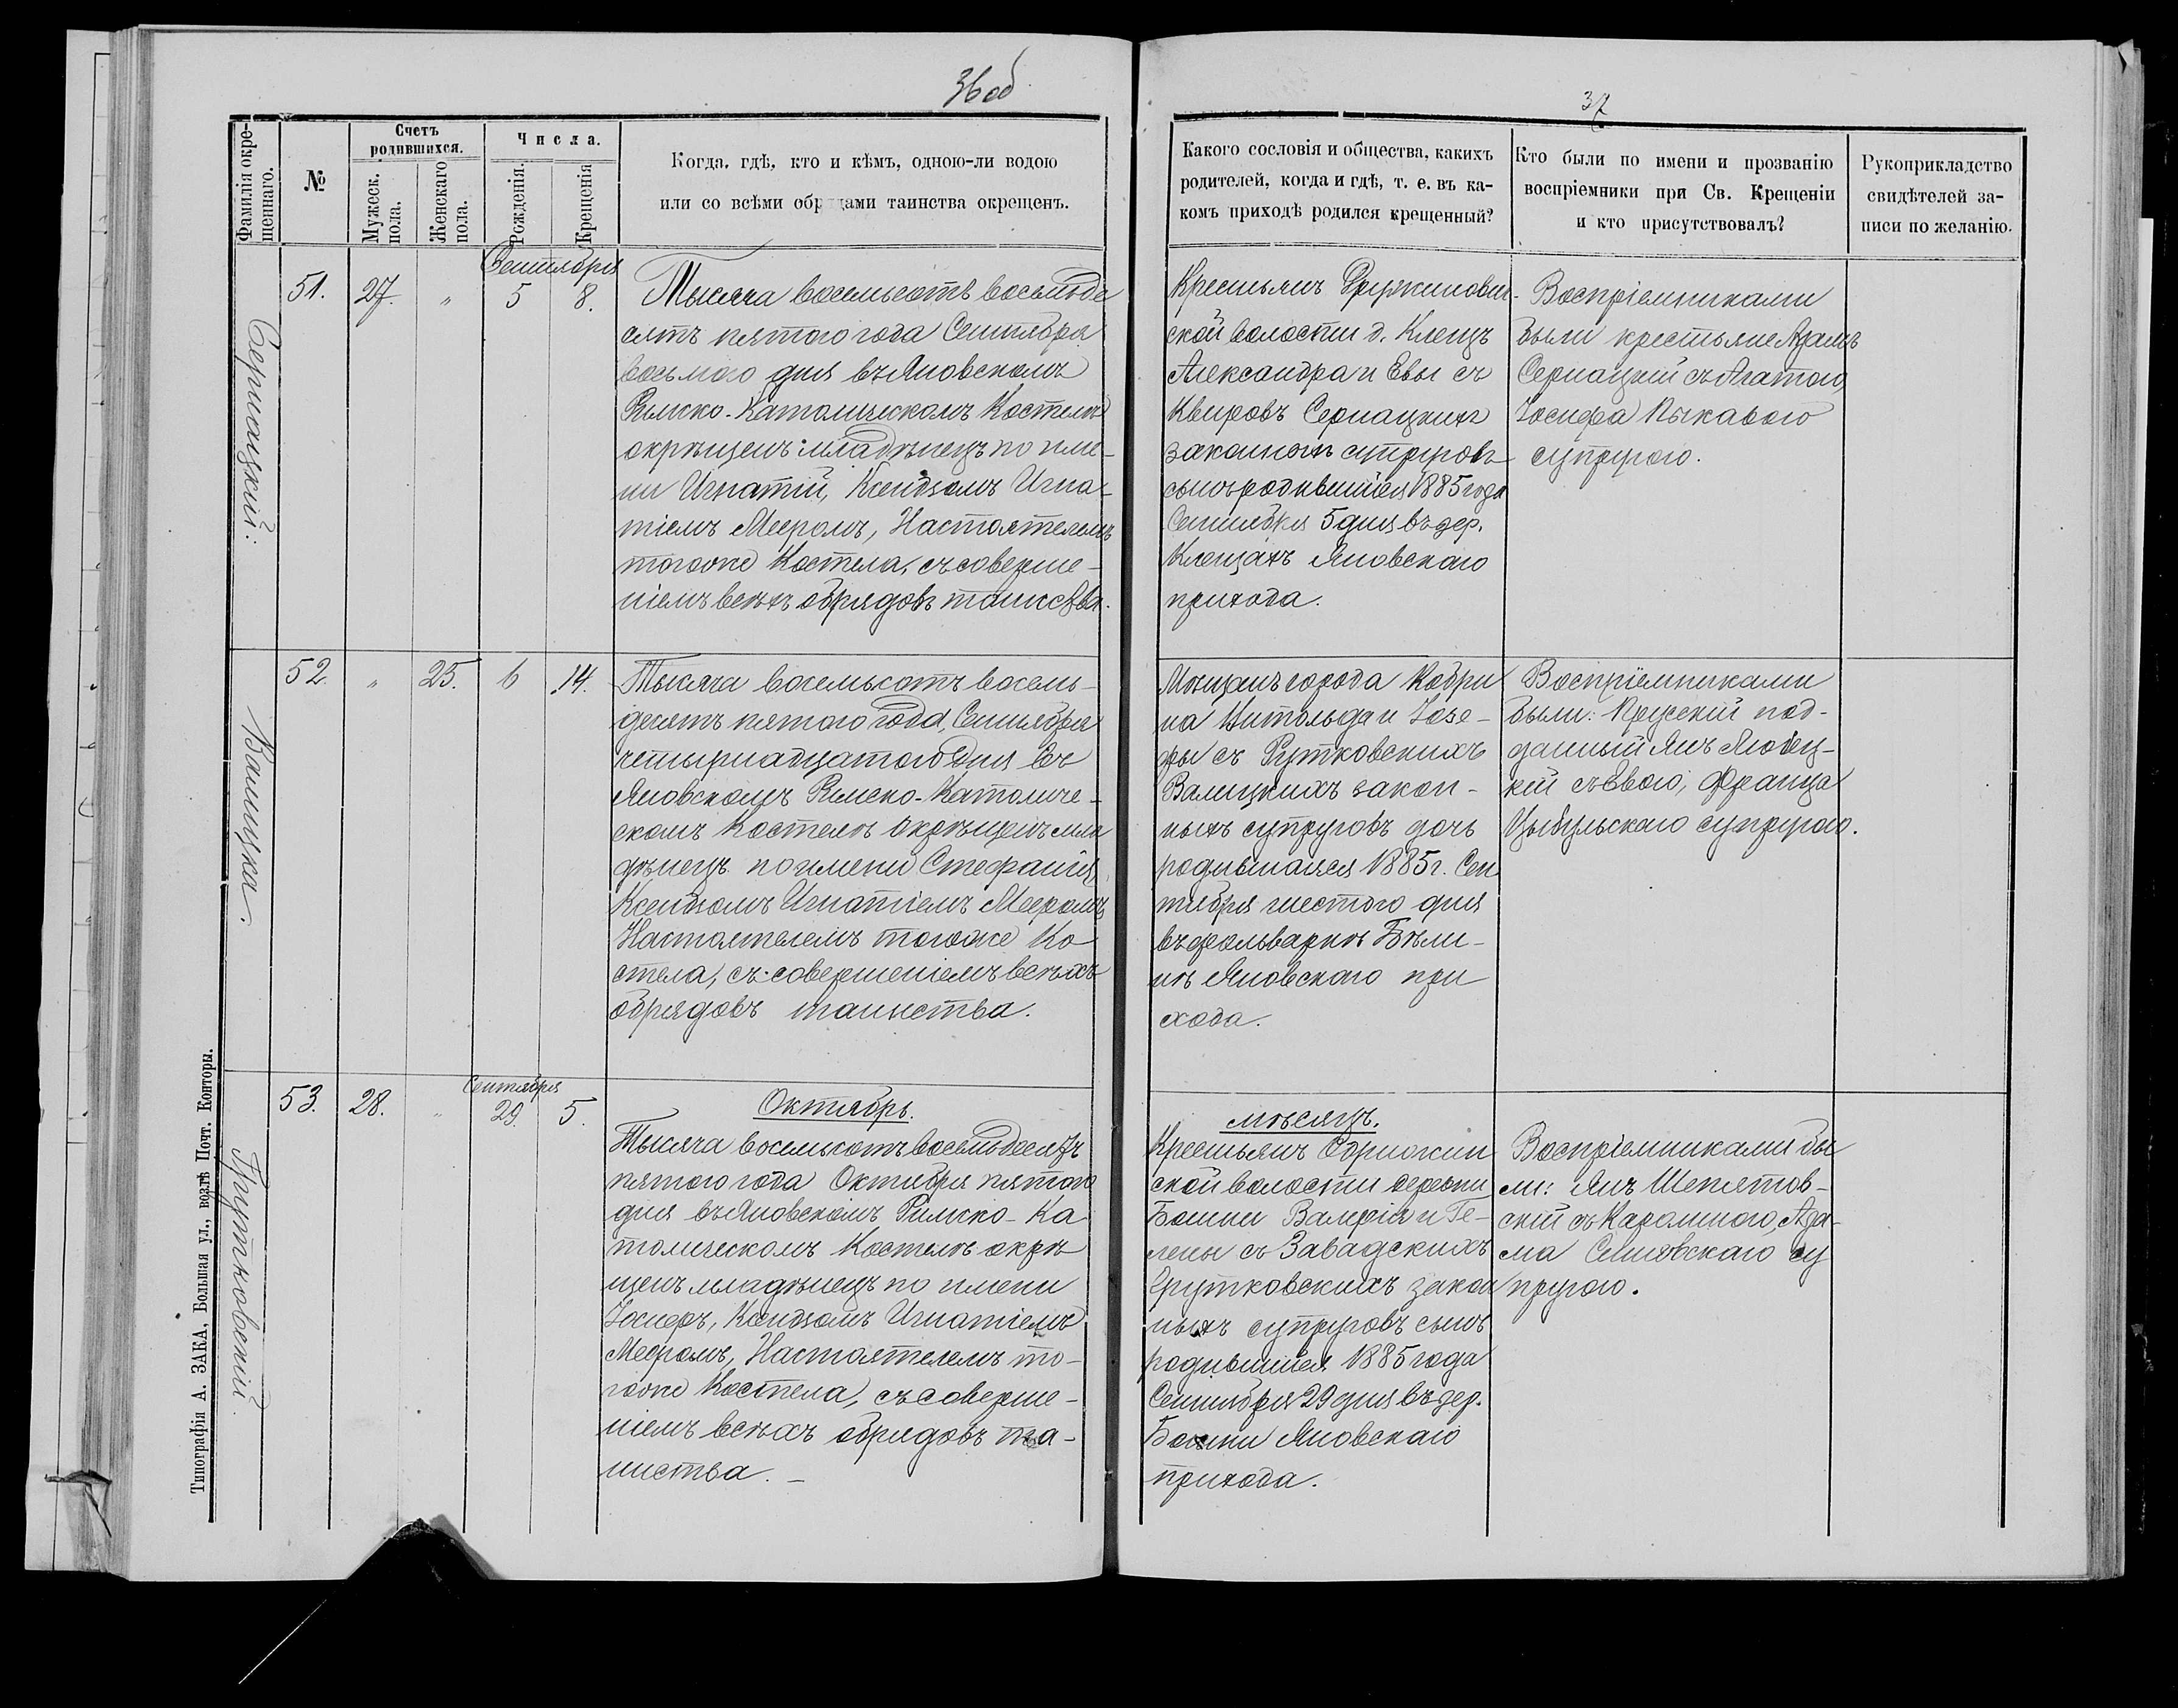 36 об
37
Фамилія окре-
щеннаго.
№
Счетъ
родившихся.
Мужеск.
пола.
Женскаго
пола.
Числа.
Рожденія.
Крещенія
Когда, гдѣ, кто и кѣмъ, одною-ли водою
или со всѣми обрядами таинства окрещенъ.
Какого сословія и общества, какихъ
родителей, когда и гдѣ, т. е. въ ка-
комъ приходѣ родился крещенный?
Кто были по имени и прозванію
воспріемники при Св. Крещеніи
и кто присутствовалъ?
Рукоприкладство
свидѣтелей за-
писи по желанію.
Сернацкій:
51.
27.
"
Сентября
5
8.
Тысяча восемьсотъ восемьде
сятъ пятого года Сентября
восьмого дня въ Яновскомъ
Римско-Католическомъ Костелѣ
окрѣщенъ младѣнецъ по име-
ни Игнатій, Ксендзомъ Игна-
тіемъ Мееромъ, Настоятелемъ
тогоже Костела, съ соверше-
ніемъ всѣхъ обрядовъ таинства.
Крестьянъ Дружилович-
ской волости д. Клещъ
Александра и Евы съ
Сернацкихъ
законныхъ супруговъ
сынъ родившійся 1885 года
Сентября 5 дня въ дер.
Клещахъ Яновскаго
прихода.
Воспріемниками
были крестьяне Адамъ
Сернацкій съ Агатою,
Іосифа
супругою.
Валицка.
52.
"
25.
6
14.
Тысяча восемьсотъ восемь-
десятъ пятого года, Сентября
четырнадцатого дня въ
Яновскомъ Римско-Католиче-
скомъ Костелѣ окрѣщенъ мла
дѣнецъ по имени Стефанія,
Ксендзомъ Игнатіемъ Мееромъ,
Настоятелемъ тогоже Ко
стела, съ совершеніемъ всѣхъ
обрядовъ таинства.
Мѣщанъ города Кобри
на Витольда и Іозе-
фы съ Рутковскихъ
Валицкихъ закон-
ныхъ супруговъ дочь
родившаяся 1885 г. Сен
тября шестого дня
въ фольваркѣ Бѣли-
нѣ Яновскаго при
хода.
Воспріемниками
были: Прусскій под-
данный Янъ
кій съ Евою, Франца
Цыбульскаго супругою.
Грутковскій.
53.
28.
"
Сентября
29.
5.
Октябрь.
Тысяча восемьсотъ восемьдесятъ
пятого года Октября пятого
дня въ Яновскомъ Римско-Ка
толическомъ Костелѣ окрѣ
щенъ младѣнецъ по имени
Іосифъ, Ксендзомъ Игнатіемъ
Мееромъ, Настоятелемъ то-
гоже Костела, съ соверше-
ніемъ всѣхъ обрядовъ та-
инства. -
мѣсяцъ.
Крестьянъ Одрижин
ской волости деревни
Валерія и Ге-
лены съ Завадскихъ
Грутковскихъ закон
ныхъ супруговъ сынъ
родившійся 1885 года
Сентября 29 дня въ дер.
Яновскаго
прихода.
Воспріемниками бы
ли: Янъ Шепятов-
скій съ Каролиною, Ада-
ма су
пругою.
Типографія А. ЗАКА, Большая ул., возлѣ Почт. Конторы.